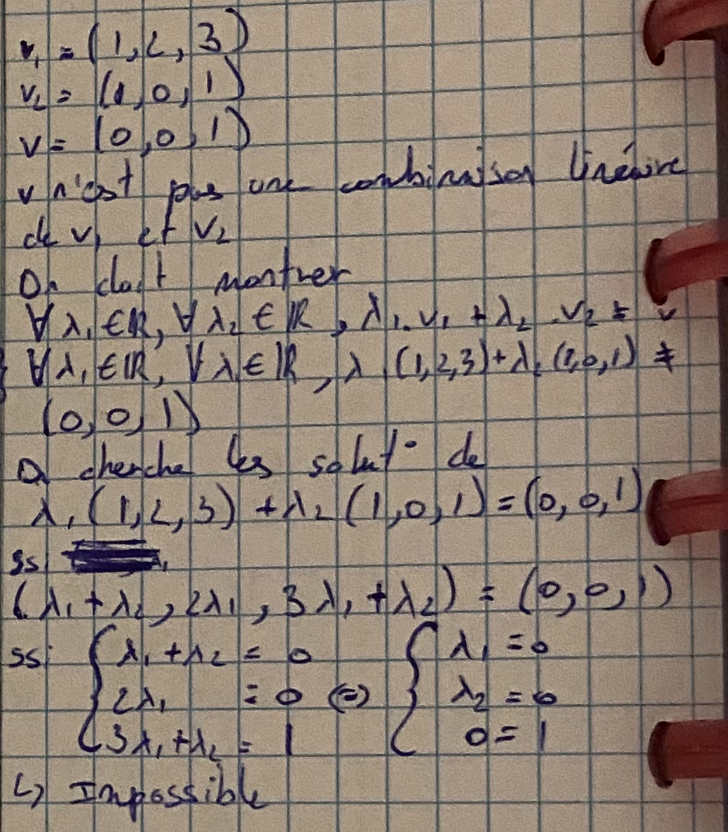 v₁ = (1, 2, 3)
v₂ = (1, 0, 1)
v = (0, 0, 1)
v n'est pas une combinaison linéaire
de v₁ et v₂
On doit montrer
∀ λ₁ ∈ ℝ, ∀ λ₂ ∈ ℝ, λ₁.v₁ + λ₂.v₂ ≠ v
∀ λ₁ ∈ ℝ, ∀ λ ∈ ℝ, λ.(1, 2, 3) + λ₂(1, 0, 1) ≠
(0, 0, 1)
On cherche les solut° de
λ₁(1, 2, 3) + λ₂(1, 0, 1) = (0, 0, 1)
ssi
(λ₁ + λ₂, 2λ₁, 3λ₁ + λ₂) = (0, 0, 1)
ssi { λ₁ + λ₂ = 0 { λ₁ = 0
2λ₁ = 0 (=) λ₂ = 0
3λ₁ + λ₂ = 1 0 = 1
↳ Impossible